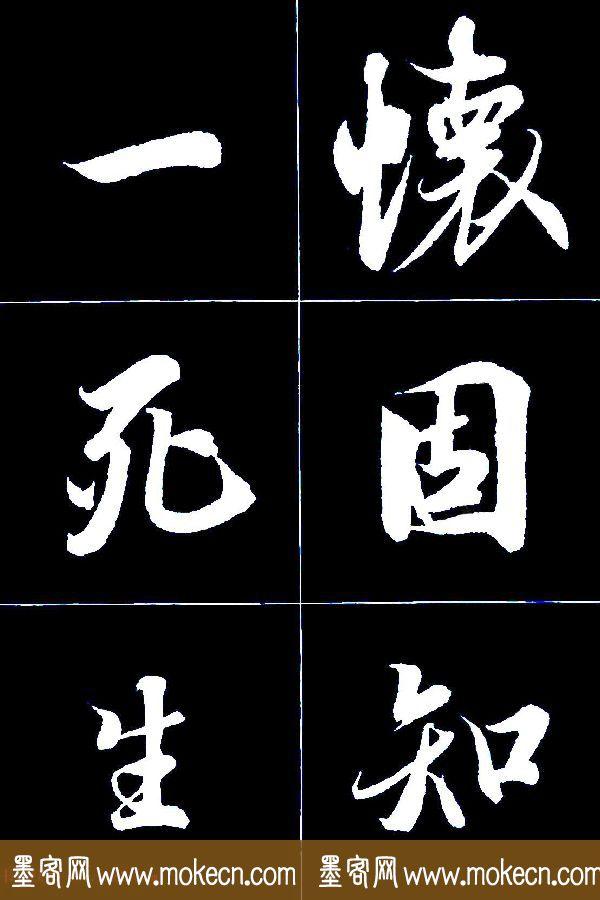 懷固知
一死生
墨客网 www.mokecn.com 墨客网 www.mokecn.com